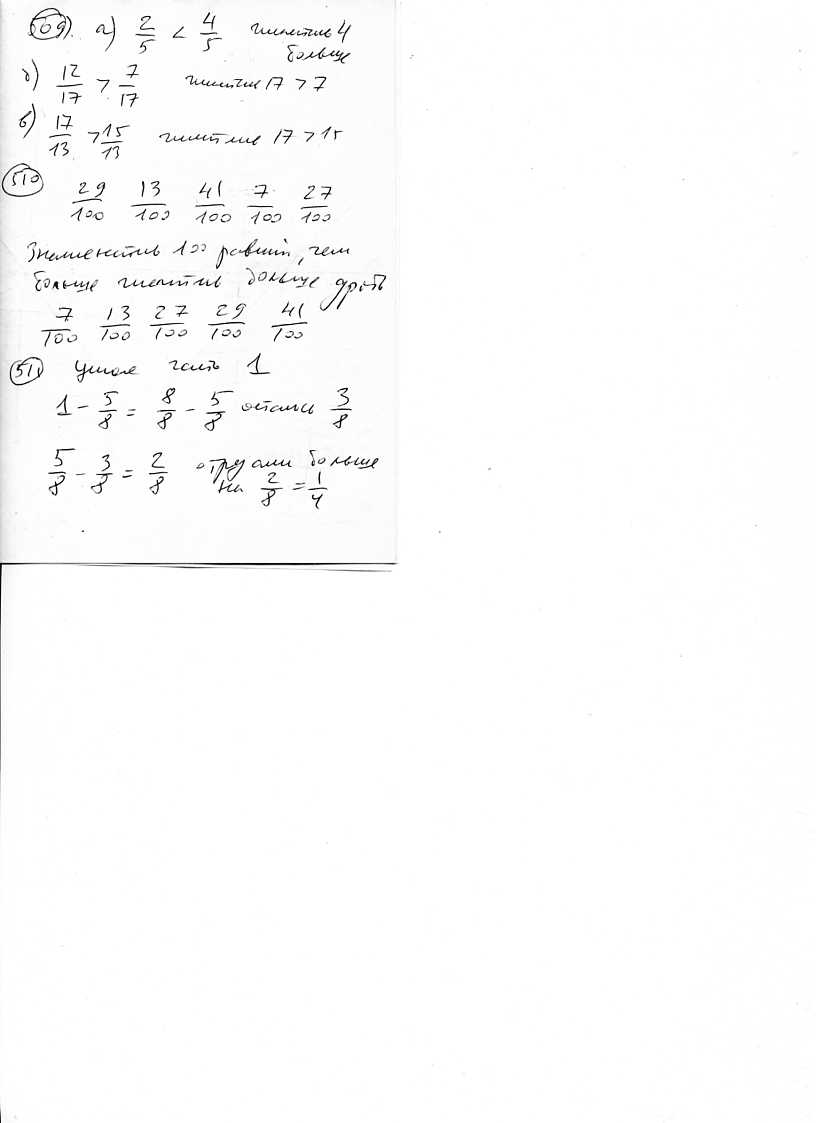 509). а) 2/5 < 4/5 числитель 4
больше
б) 12/17 > 7/17 17 > 7
в) 17/13 > 15/13 числитель 17 > 15
510
29/100 13/100 41/100 7/100 27/100
Знаменатель 100 равный, чем
больше числитель больше дробь
7/100 13/100 27/100 29/100 41/100
511 часть 1
1 - 5/8 = 8/8 - 5/8 3/8
5/8 - 3/8 = 2/8 больше
на 2/8 = 1/4